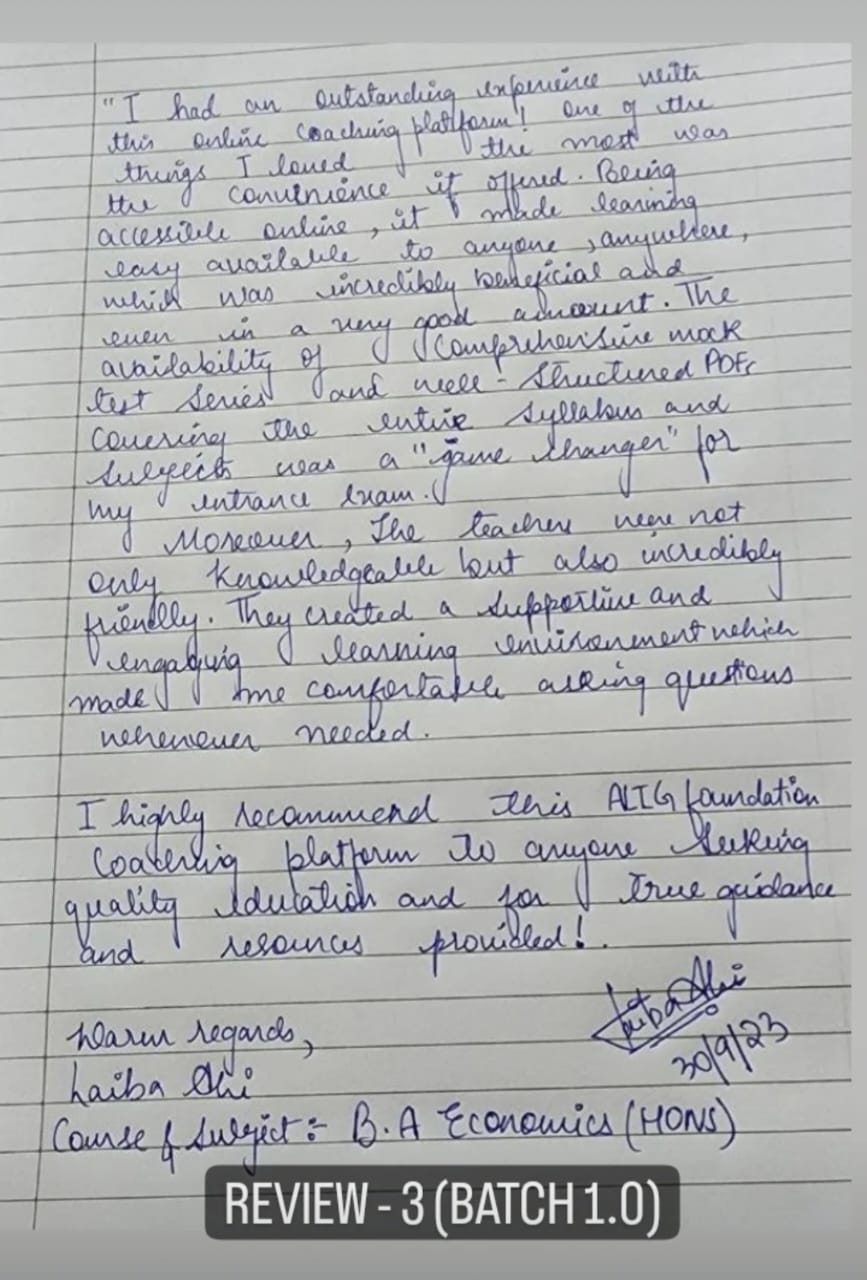 "I had an outstanding experience with
this online coaching platform! One of the
things I loved the most was
the convenience it offered. Being
accessible online, it made learning
easy available to anyone, anywhere,
which was incredibly beneficial and
even in a very good amount. The
availability of comprehensive mock
test series and well-structured PDFs
covering the entire syllabus and
subjects was a "game changer" for
my entrance exam.
Moreover, The teachers were not
only knowledgeable but also incredibly
friendly. They created a supportive and
engaging learning environment which
made me comfortable asking questions
whenever needed.
I highly recommend this ALIG foundation
platform to anyone seeking
quality education and for true guidance
and resources provided!
Laiba
30/9/23
Warm regards,
Laiba
Course & Subject:- B.A Economics (HONS)
REVIEW - 3 (BATCH 1.0)